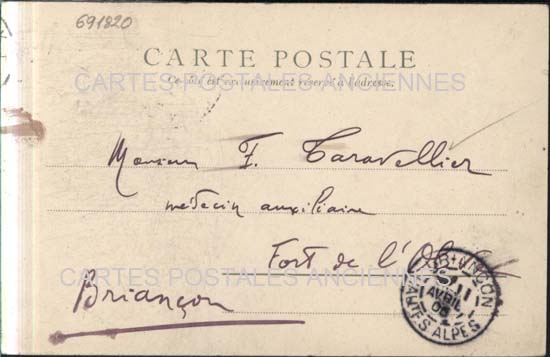 691820
CARTE POSTALE
CARTES POSTALES ANCIENNES
Ce côté est exclusivement réservé à l'adresse.
Monsieur F. Taravellier
médecin auxiliaire
Fort de l'
CARTES POSTALES ANCIENNES
Briançon
BRIANÇON
AVRIL
05
HAUTES ALPES